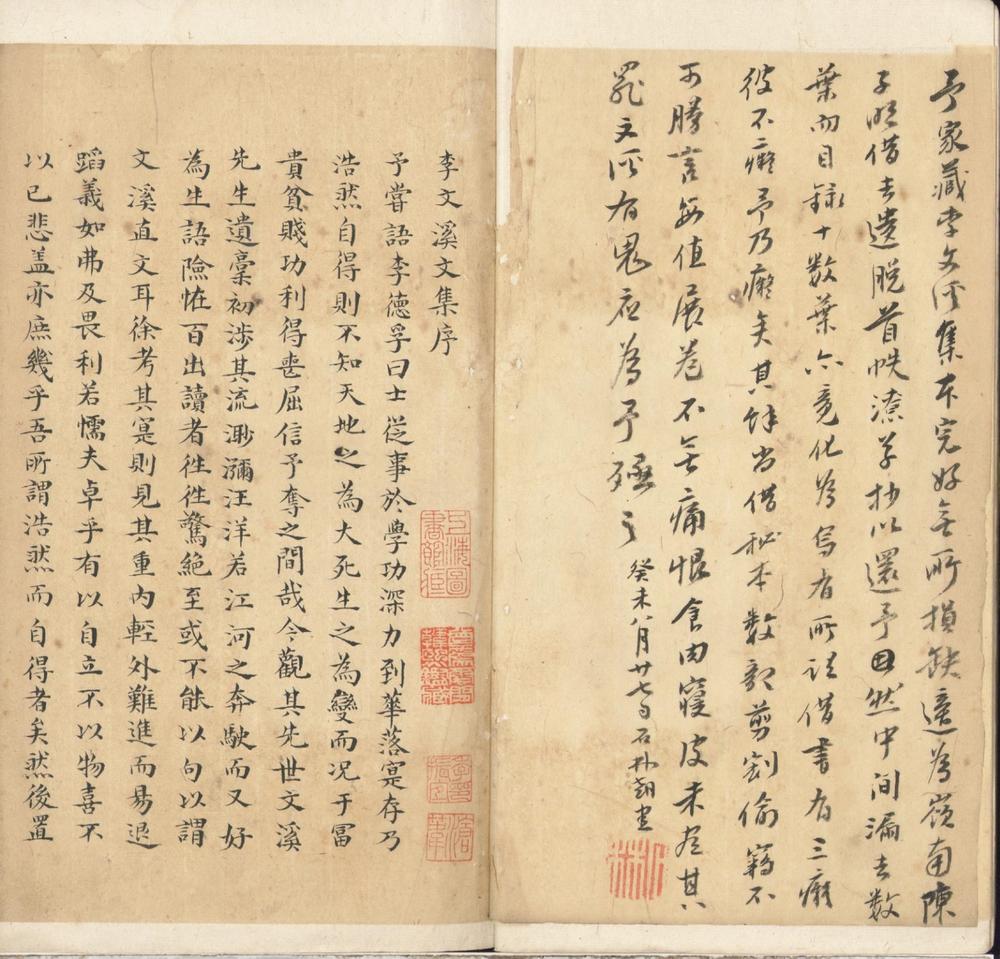 予家藏李文溪集本完好無所損缺適為嶺南陳
子借去遺脫首帙潦草抄以還予因然中间漏去数
葉而目録十数葉亦竟化为烏有所謂借書有三癡
彼不癡予乃癡矣其餘尚借秘本數部剪割偷竊不
可勝言每值展卷不無痛恨食肉寢皮未尽其
罪文溪有鬼應為予殛之 癸未八月廿七日石朴書
李文溪文集序
予嘗語李德孚曰士從事於學功深力到華落寔存乃
浩然自得則不知天地之為大死生之為變而况于冨
貴貧賤功利得丧屈信予奪之間哉今觀其先世文溪
先生遺稾初涉其流渺瀰汪洋若江河之奔駛而又好
為生語險怪百出讀者徃徃驚絶至或不能以句以謂
文溪直文耳徐考其寔則見其重内輕外難進而易退
蹈義如弗及畏利若懦夫卓乎有以自立不以物喜不
以己悲盖亦庶幾乎吾所謂浩然而自得者矣然後置
上海圖書館藏